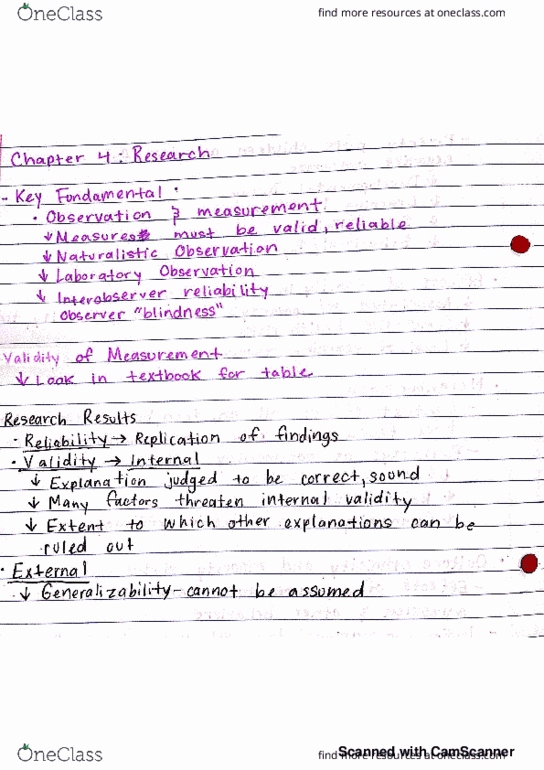 OneClass
find more resources at oneclass.com
Chapter 4: Research
- Key Fundamental
• Observation & measurement
↓ Measures must be valid, reliable
↓ Naturalistic Observation
↓ Laboratory Observation
↓ Interobserver reliability
Observer "blindness"
Validity of Measurement
↓ Look in textbook for table
Research Results
• Reliability → Replication of findings
• Validity → Internal
↓ Explanation judged to be correct, sound
↓ Many factors threaten internal validity
↓ Extent to which other explanations can be
ruled out
• External
↓ Generalizability - cannot be assumed
OneClass
find more resources at oneclass.com
Scanned with CamScanner